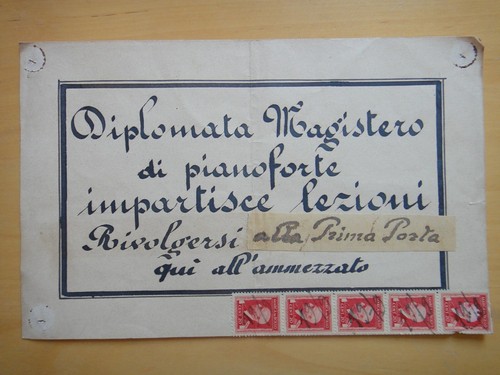 Diplomata Magistero
di pianoforte
impartisce lezioni
Rivolgersi alla Prima Porta
quì all'ammezzato